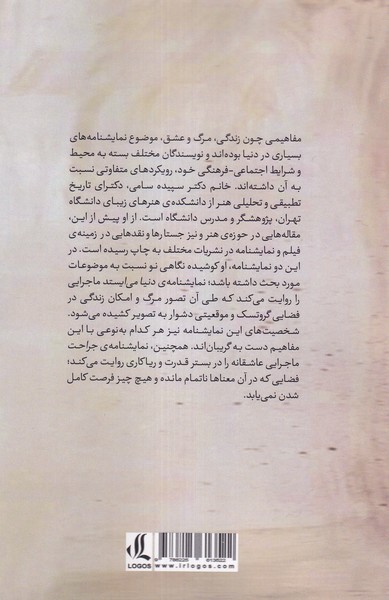 مفاهیمی چون زندگی، مرگ و عشق، موضوع نمایشنامه‌های
بسیاری در دنیا بوده‌اند و نویسندگان مختلف بسته به محیط
و شرایط اجتماعی-فرهنگی خود، رویکردهای متفاوتی نسبت
به آن داشته‌اند. خانم دکتر سپیده سامی، دکترای تاریخ
تطبیقی و تحلیلی هنر از دانشکده‌ی هنرهای زیبای دانشگاه
تهران، پژوهشگر و مدرس دانشگاه است. از او پیش از این،
مقاله‌هایی در حوزه‌ی هنر و نیز جستارها و نقدهایی در زمینه‌ی
فیلم و نمایشنامه در نشریات مختلف به چاپ رسیده است. در
این دو نمایشنامه، او کوشیده نگاهی نو نسبت به موضوعات
مورد بحث داشته باشد؛ نمایشنامه‌ی دنیا می‌ایستد ماجرایی
را روایت می‌کند که طی آن تصور مرگ و امکان زندگی در
فضایی گروتسک و موقعیتی دشوار به تصویر کشیده می‌شود.
شخصیت‌های این نمایشنامه نیز هر کدام به‌نوعی با این
مفاهیم دست به گریبان‌اند. همچنین، نمایشنامه‌ی جراحت
ماجرایی عاشقانه را در بستر قدرت و ریاکاری روایت می‌کند؛
فضایی که در آن معناها ناتمام مانده و هیچ چیز فرصت کامل
شدن نمی‌یابد.
LOGOS
www.irlogos.com